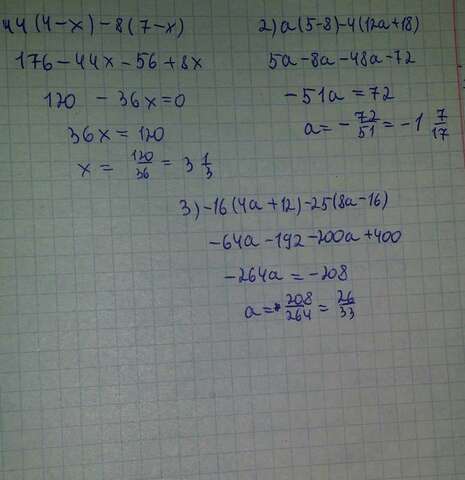 44(4-x)-8(7-x)
176-44x-56+8x
120 - 36x=0
36x = 120
x = 120/36 = 3 1/3
2) a(5-8)-4(12a+18)
5a-8a-48a-72
-51a = 72
a = - 72/51 = -1 7/17
3) -16(4a+12)-25(8a-16)
-64a-192-200a+400
-264a = -208
a = 208/264 = 26/33